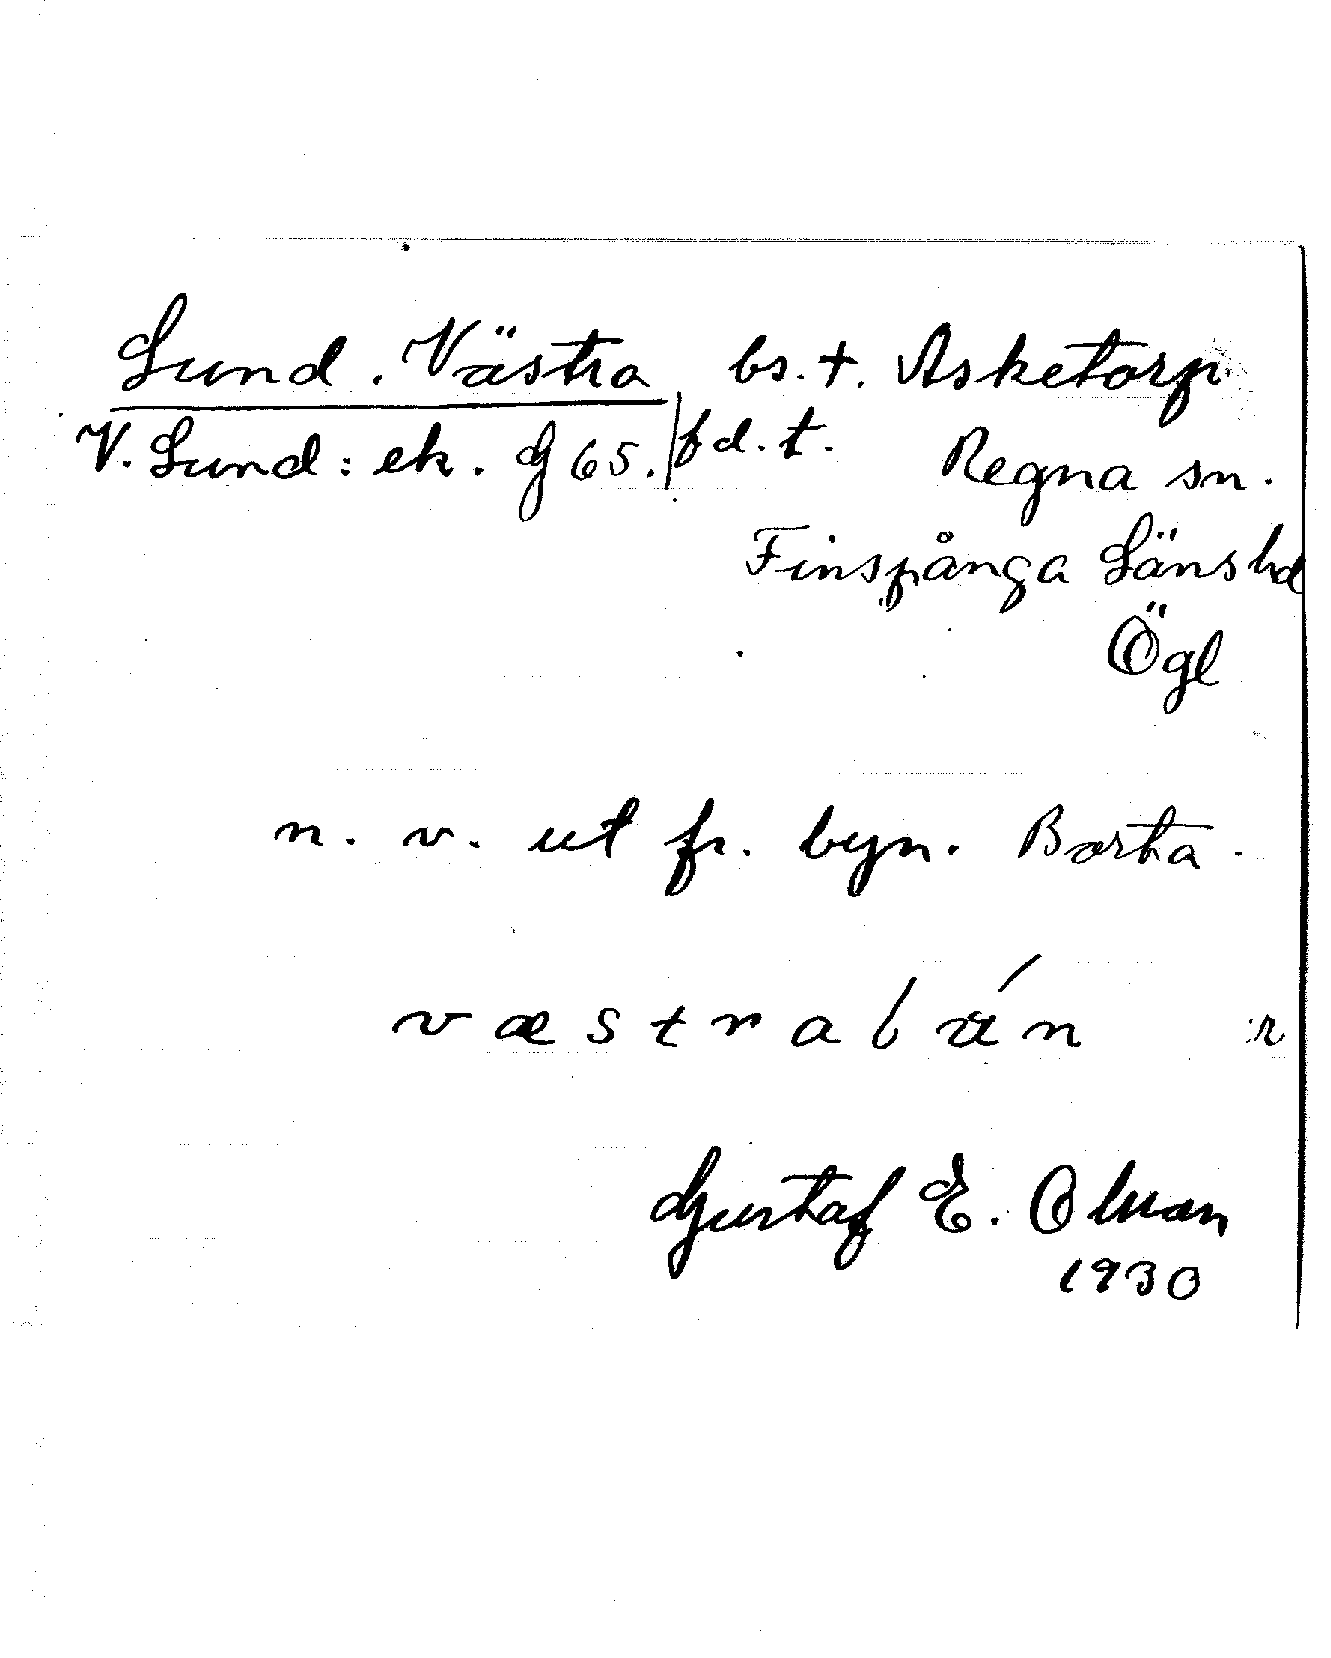 Lund. Västra bs. t. Asketorp
V. Lund: ek. G 65. fd. t. Regna sn.
Finspånga Länshd
Ögl
n. v. ut fr. byn. Borta.
væstra n
Gustaf E. Olman
1930